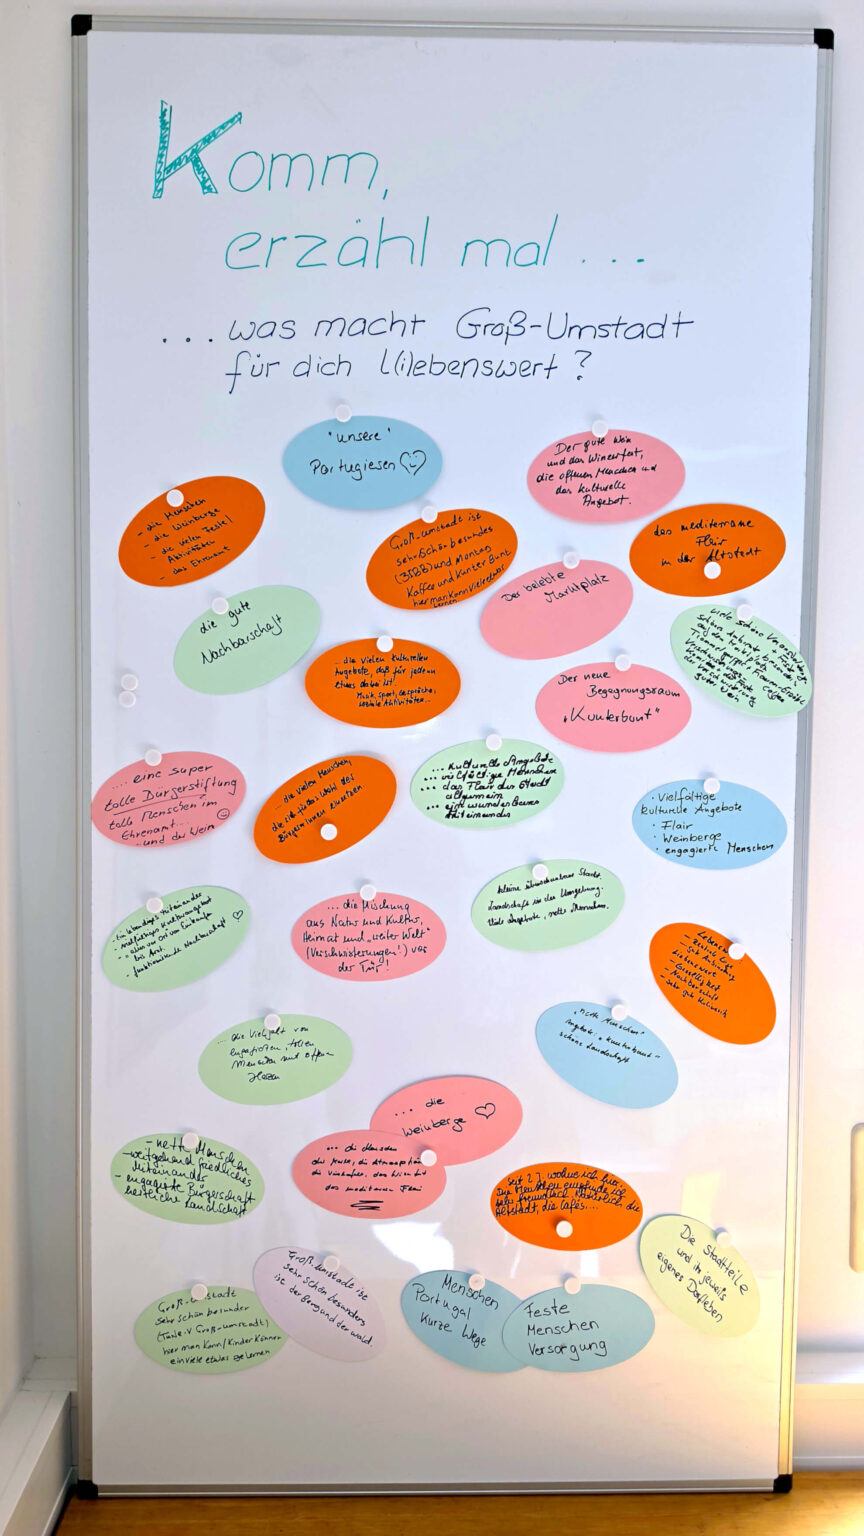 Komm,
erzählt mal ...
... was macht Groß-Umstadt
für dich l(i)ebenswert?
"unsere"
Portugiesen
Der gute Wein
und das Winzerfest,
die offenen Menschen und
das kulturelle
Angebot.
- die Menschen
- die Weinberge
- die vielen Feste/
Aktivitäten
- das Ehrenamt
Groß-Umstadt ist
sehr schön besundes
(3IBB) und Montag
Kaffee und Kunter Bunt
hier man kann viele etwas
lernen.
das mediterrane
Flair
in der Altstadt
Der belebte
Marktplatz
die gute
Nachbarschaft
viele schöne
auf den Marktplatz
... die vielen kulturellen
Angebote, daß für jeden
etwas dabei ist
Musik, Sport, Gespräche,
soziale Aktivitäten...
Der neue
Begegnungsraum
"Kunterbunt"
.... eine super
tolle Bürgerstiftung
tolle Menschen im
Ehrenamt...
- und der Wein
... die vielen Menschen,
die sich für das Wohl der
BürgerInnen einsetzen
... kulturelle Angebote
... vielfältige Menschen
... das Flair der Stadt
allgemein
... ein wunderbares
Miteinander
· Vielfältige
kulturelle Angebote
· Flair
· Weinberge
· engagierte Menschen
- Ein lebendiges Miteinander
- vielfältiges Kulturangebot
- alles vor Ort vom Einkaufen
bis Arzt.
- funktionierende Nachbarschaft
... die Mischung
aus Natur und Kultur,
Heimat und "weiter Welt"
(Verschwisterungen!) vor
der Tür!
kleine überschaubare Stadt.
Landschaft in der Umgebung.
Viele Angebote, nette Menschen.
Lebenswert
- Zentrale Lage
- Gute Anbindung
Liebenswert
- Geselligkeit
- Nachbarschaft
- sehr gute
... die Vielfalt von
engagierten, tollen
Menschen mit offenen
Herzen
"nette Menschen"
Angebote: "Kunterbunt"
schöne Landschaft
... die
Weinberge
- nette Menschen
- weitgehend friedliches
Miteinander
- engagierte Bürgerschaft
herrliche Landschaft
... die Menschen
die Musik, die Atmosphäre
die Weinberge, das
das mediterane Flair
Seit 27 wohne ich hier.
Die Menschen empfinde ich
sehr freundlich. Natürlich, die
Altstadt, die Cafés....
Die Stadtteile
und ihr jeweils
eigenes Dorfleben
Groß-Umstadt
sehr schön besunder
hier man Kann/Kinder Können
ein viele etwas gelernen
Groß-Umstadt ist
sehr schön besunders
ist der Berg und der Wald.
Menschen
Portugal
Kurze Wege
Feste
Menschen
Versorgung